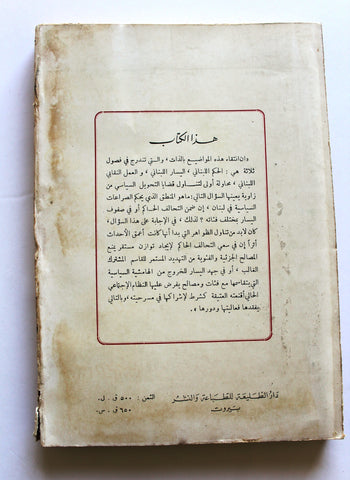 هذا الكتاب
« ان انتقاء هذه المواضيع بالذات ، والتي تندرج في فصول
ثلاثة هي : الحكم اللبناني ، اليسار اللبناني ، و العمل النقابي
اللبناني ، محاولة أولى لتناول قضايا التحويل السياسي من
زاوية يعينها السؤال التالي: ماهو المنطق الذي يحكم الصراعات
السياسية في لبنان ، إن ضمن التحالف الحاكم أو في صفوف
اليسار بمختلف فئاته ؟ لذلك ، في الإجابة على هذا السؤال ،
كان لابد من تناول الظواهر التي بدا أنها كانت أعمق الأحداث
أثراً إن في سعي التحالف الحاكم لإيجاد توازن مستقر يمنع
المصالح الجزئية والفئوية من التهديد المستمر للقاسم المشترك
الغالب ، أو في جهد اليسار للخروج من الهامشية السياسية
التي يتقاسمها مع فئات ومصالح يفرض عليها النظام الإجتماعي
الحالي أقنعته العتيقة كشرط لإشراكها في مسرحيته ، وبالتالي
يفقدها فعاليتها ودورها » .
دار الطليعة للطباعة والنشر
بيروت
الثمن : ٥٠٠ ق. ل.
٦٥٠ ق. س.